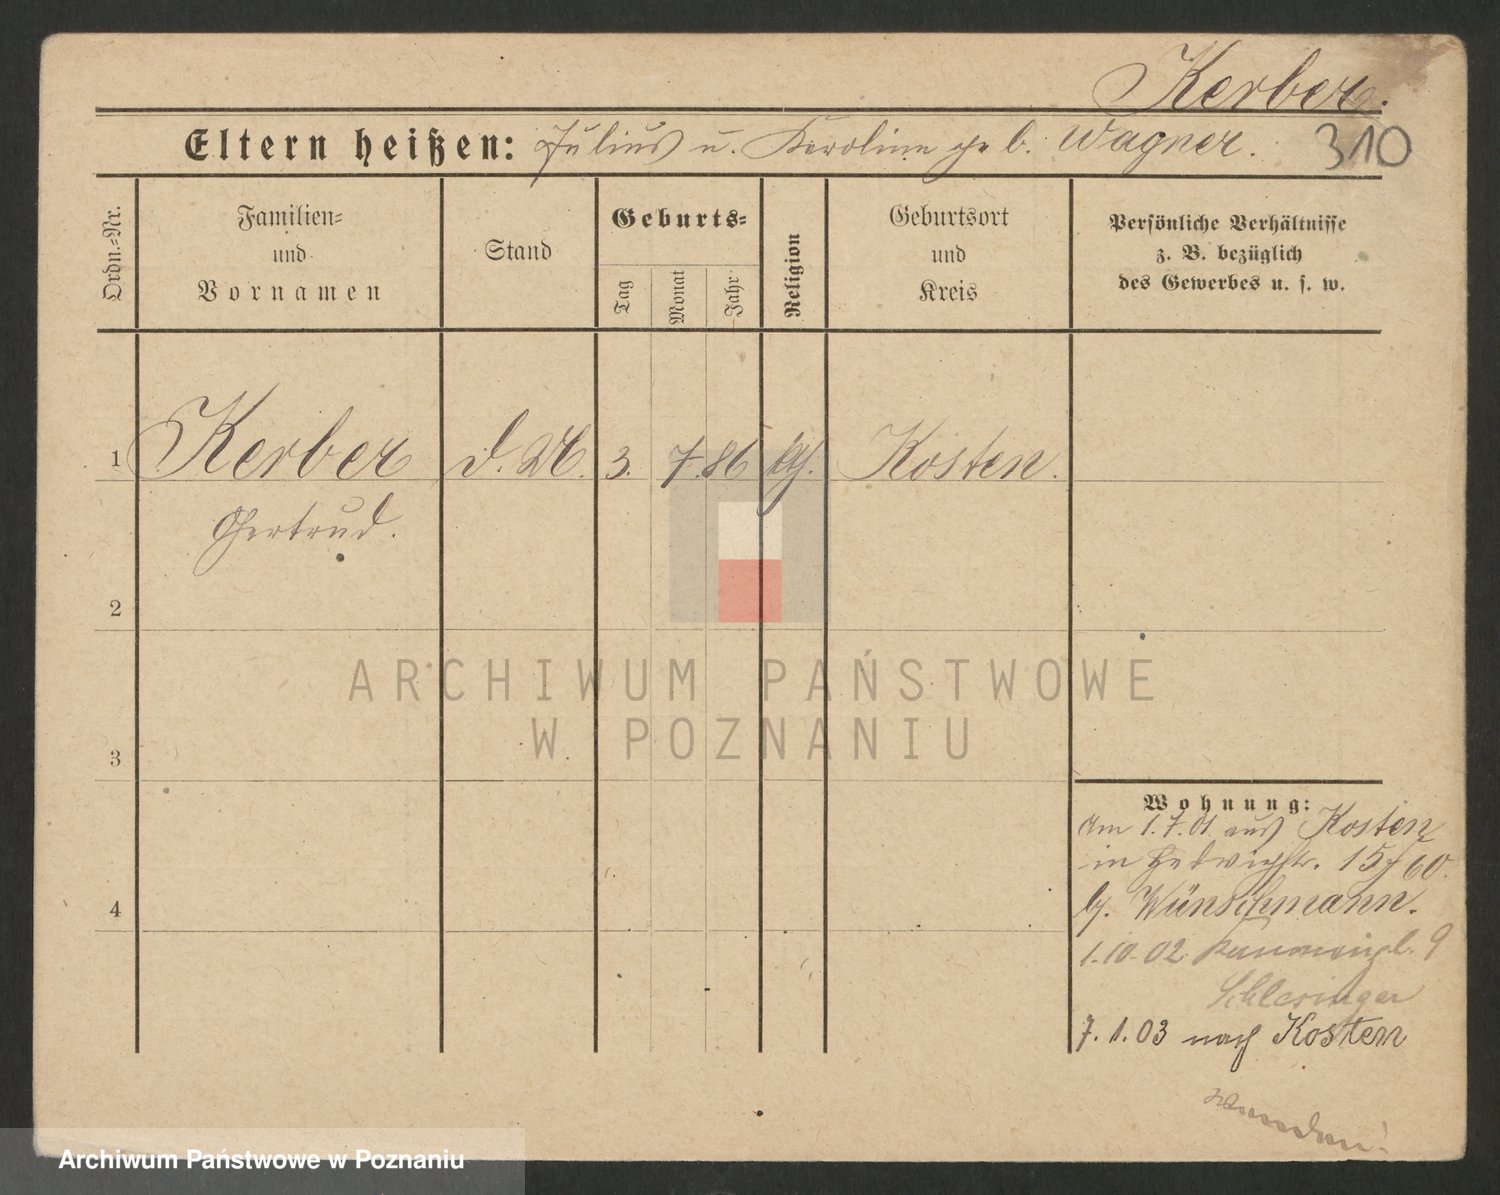 Kerber.
Eltern heißen: Julius u. Karoline geb. Wagner. 310
Ordn.-Nr.
Familien-
und
Vornamen
Stand
Geburts-
Tag
Monat
Jahr
Religion
Geburtsort
und
Kreis
Persönliche Verhältnisse
z. B. bezüglich
des Gewerbes u. s. w.
1 Kerber d. M. 3. 7. 86 kth. Kosten.
Gertrud.
2
3
4
ARCHIWUM PAŃSTWOWE
W POZNANIU
Wohnung:
Am 1.7.01 aus Kosten
in Hedwigstr. 15
b. Wünschmann.
1.10.02 9
Schlesinger
7.1.03 nach Kosten
wenden!
Archiwum Państwowe w Poznaniu